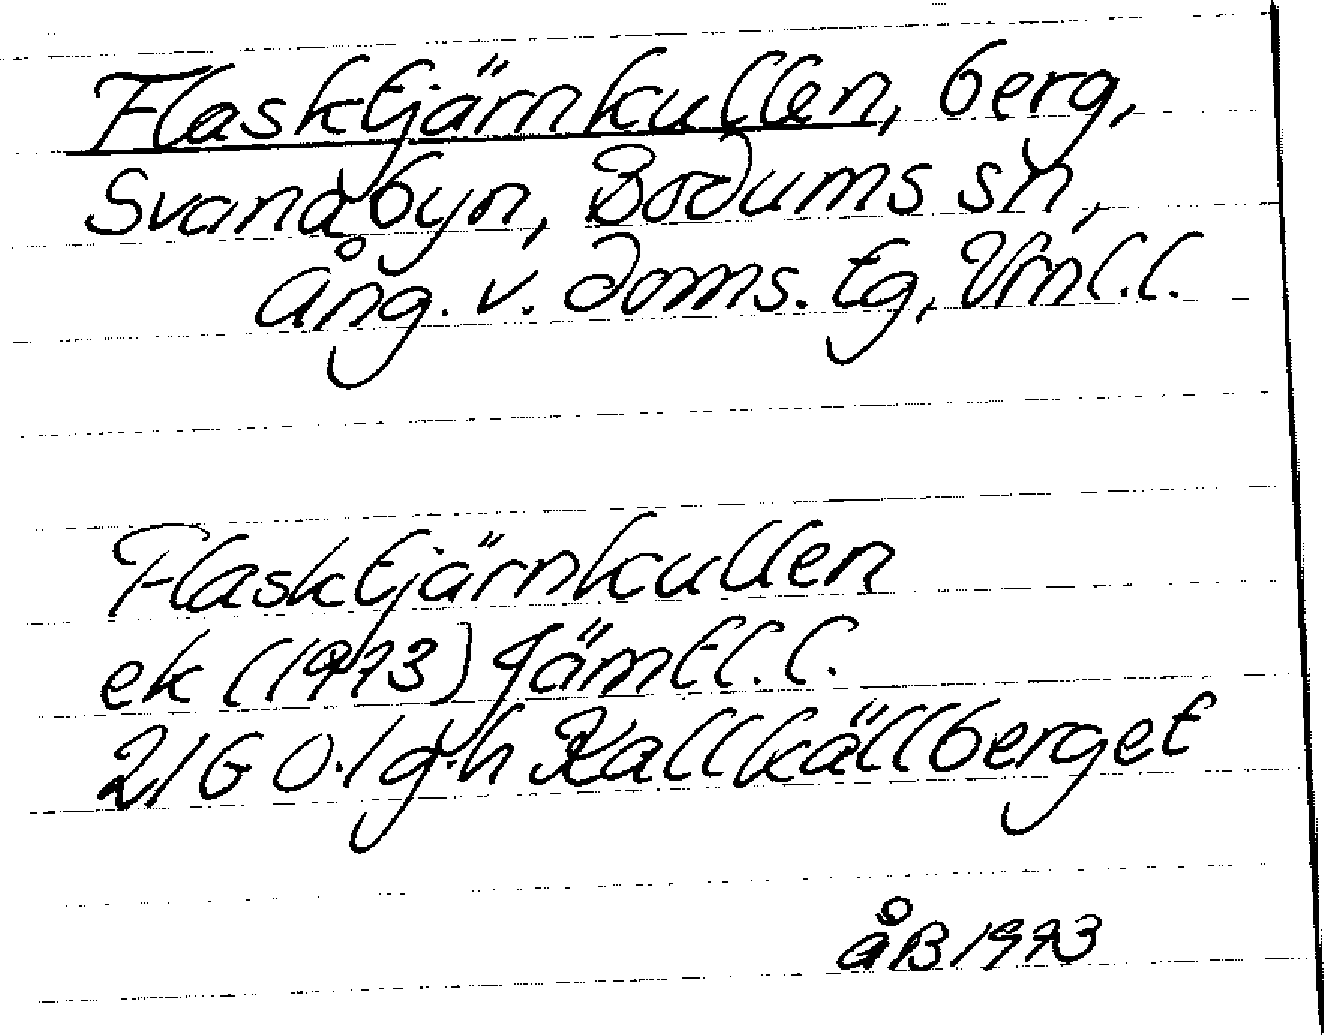 Flasktjärnkullen, berg,
Svanabyn, Bodums sn,
Ång. v. doms. tg, Vrnl. l.
Flasktjärnkullen
ek (1973) Jämtl. l.
21G 0-1 g-h Kallkällberget
åB 1973